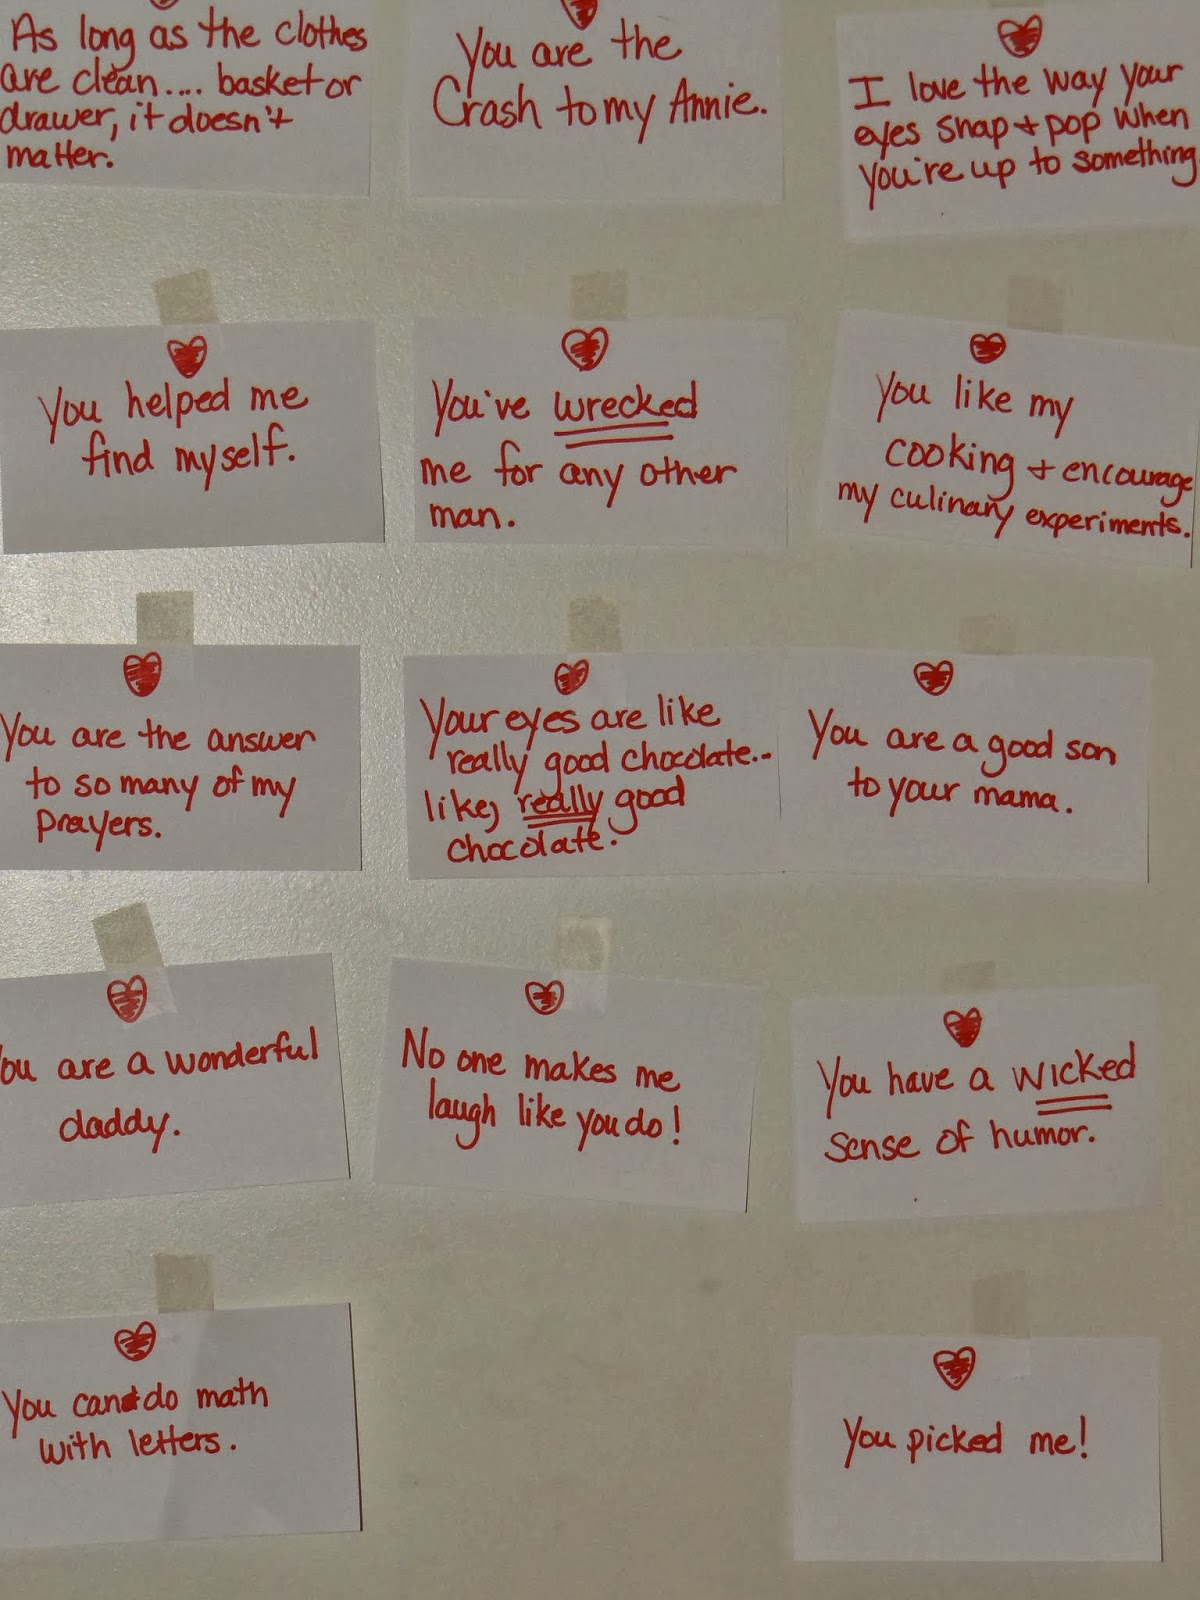 As long as the clothes
are clean.... basket or
drawer, it doesn't
matter.
You are the
Crash to my Annie.
I love the way your
eyes snap + pop when
you're up to something
You helped me
find myself.
You've wrecked
me for any other
man.
You like my
cooking + encourage
my culinary experiments.
You are the answer
to so many of my
prayers.
Your eyes are like
really good chocolate...
like, really good
chocolate.
You are a good son
to your mama.
ou are a wonderful
daddy.
No one makes me
laugh like you do!
You have a wicked
sense of humor.
You can do math
with letters.
You picked me!